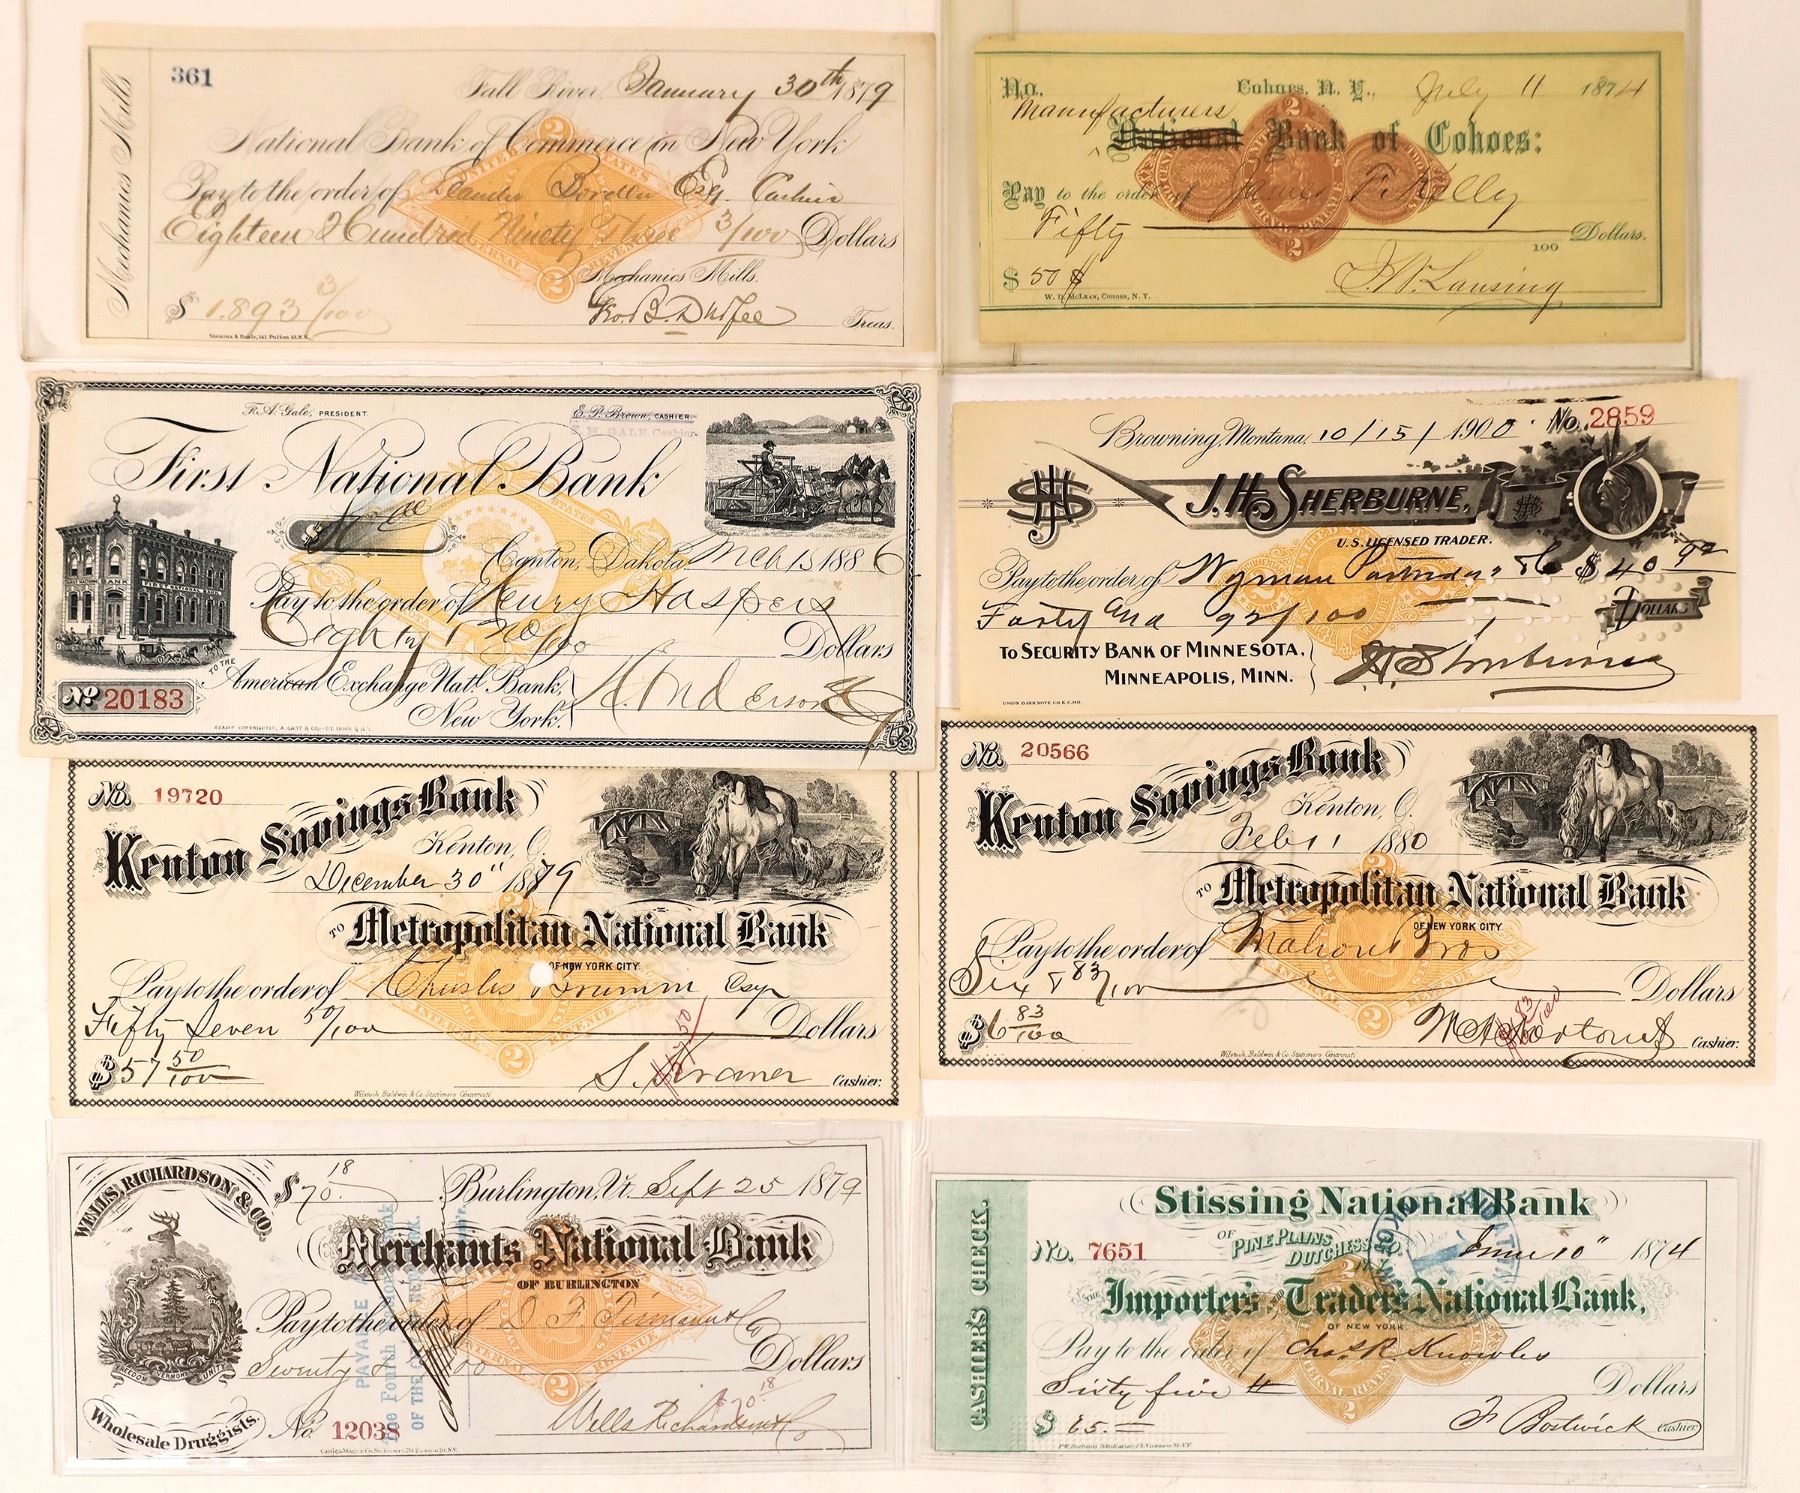 Mechanics Mills
361
Fall River, January 30th 1879
National Bank of Commerce in New York
Pay to the order of Esq. Cashier
Eighteen Hundred Ninety Three 3/100 Dollars
Mechanics Mills.
$ 1.893 3/100
Treas.
Stearns & Beale, 147 Fulton St. N.Y.
No. Cohoes, N. Y., July 11 1874
Manufacturers
National Bank of Cohoes:
Pay to the order of James F. Kelly
Fifty
100 Dollars.
$ 50
W. D. McLean, Cohoes, N. Y.
J. W. Lansing
F. A. Gale, PRESIDENT.
E. P. Brown, CASHIER.
First National Bank
Canton, Dakota, 1886
FIRST NATIONAL BANK
Pay to the order of Henry Haspers
Eighty & 20/100 Dollars
TO THE American Exchange Natl. Bank,
New York.
No 20183
STAMP COPYRIGHTED, A. GAST & CO.
Browning, Montana, 10/15/1900 No. 2859
J.H. SHERBURNE,
U.S. LICENSED TRADER.
Pay to the order of Wyman $ 40 92
Forty and 92/100 DOLLARS
TO SECURITY BANK OF MINNESOTA,
MINNEAPOLIS, MINN.
UNION BANK NOTE CO. K.C. MO.
No. 19720
Kenton Savings Bank
Kenton, O.
December 30" 1879
TO Metropolitan National Bank
OF NEW YORK CITY
Pay to the order of Charles Brumm Esqr
Fifty Seven 50/100 Dollars
$57 50/100
S. Kraner Cashier.
Wilstach, Baldwin & Co. Stationers Cincinnati
No. 20566
Kenton Savings Bank
Kenton, O.
Feb 11 1880
TO Metropolitan National Bank
OF NEW YORK CITY
Pay to the order of Mahon Bros
Six & 83/100 Dollars
$6 83/100
Cashier.
Wilstach, Baldwin & Co. Stationers Cincinnati
WELLS, RICHARDSON & CO.
$70.18
Burlington, Vt. Sept 25 1879
Merchants National Bank
OF BURLINGTON
Pay to the order of D. F. & Co
Dollars
FREEDOM VERMONT UNITY
Wholesale Druggists.
No. 12038
PAYABLE
The Fourth
OF THE
$70.18
Wells Richardson & Co
CASHIER'S CHECK.
Stissing National Bank
OF PINE PLAINS DUTCHESS CO.
No. 7651 June 10" 1874
THE Importers AND Traders National Bank,
OF NEW YORK
Pay to the order of Chas. R. Knowles
Sixty five Dollars
$ 65.
F. Bostwick Cashier